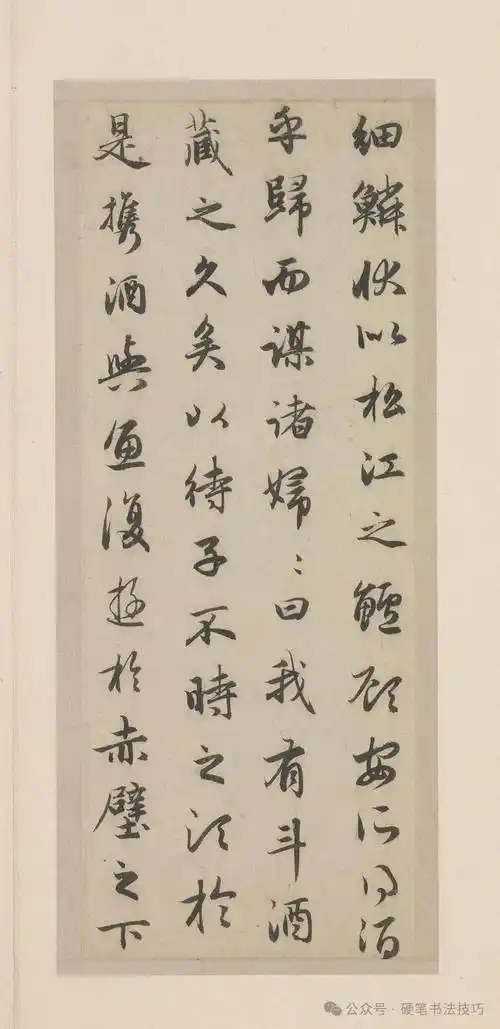 細鱗狀似松江之鱸顧安所得酒
乎歸而謀諸婦〻曰我有斗酒
藏之久矣以待子不時之須於
是携酒與魚復遊於赤壁之下
公众号·硬笔书法技巧